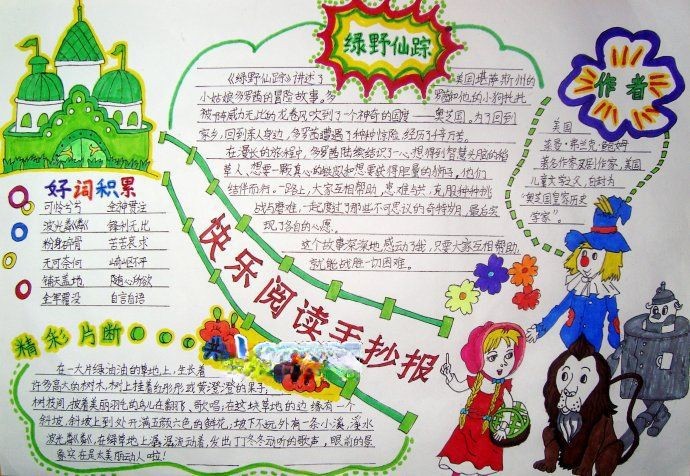 绿野仙踪
《绿野仙踪》讲述了 美国堪萨斯州的
小姑娘多罗茜的冒险故事。多 罗茜和他的小狗托托
被一阵威力无比的龙卷风吹到了一个神奇的国度——奥芝国。为了回到
家乡,回到亲人身边,多罗茜遭遇了种种惊险,经历了千辛万苦。
在漫长的旅程中,多罗茜陆续结识了一心想得到智慧头脑的稻
草人,想要一颗真心的铁皮人和想要获得胆量的狮子。他们
结伴而行。一路上,大家互相帮助,患难与共,克服种种挑
战与磨难,一起度过了那些不可思议的奇特岁月,最后实
现了各自的心愿。
这个故事深深地感动了我,只要大家互相帮助,
就能战胜一切困难。
作者
美国
莱曼·弗兰克·鲍姆
著名作家及剧作家,美国
儿童文学之父,它封为
“奥芝国皇家历史
学家”。
好词积累
可怜兮兮 全神贯注
波光粼粼 锋利无比
粉身碎骨 苦苦哀求
无可奈何 崎岖不平
铺天盖地 随心所欲
全军覆没 自言自语
快乐阅读手抄报
精彩片断
在一大片绿油油的草地上,生长着
许多高大的树木,树上挂着红彤彤或黄澄澄的果子,
树枝间,披着美丽羽毛的鸟儿在翻飞、歌唱;在这块草地的边缘有一个
斜坡,斜坡上到处开满五颜六色的鲜花,坡下不远外有一条小溪,溪水
波光粼粼,在绿草地上潺潺流动着,发出丁冬丁冬动听的歌声,眼前的景
象实在是太美丽动人啦!